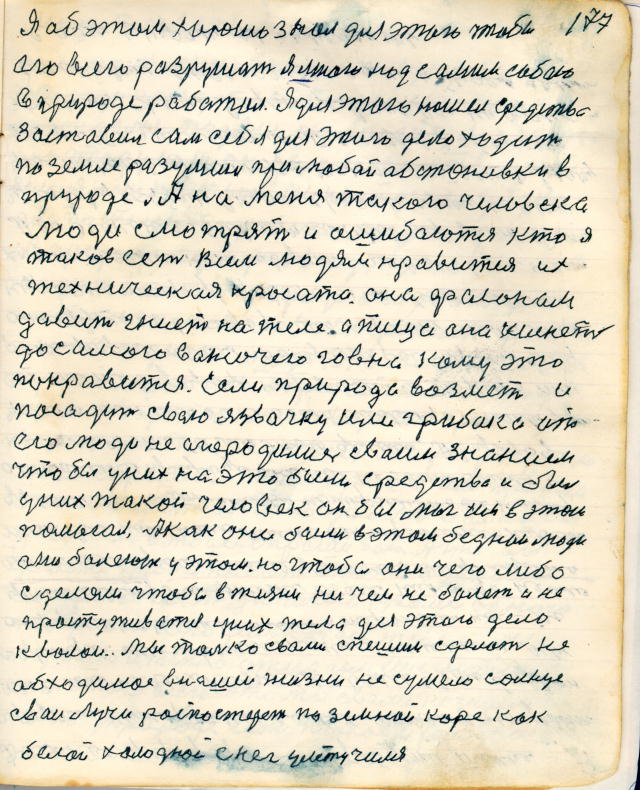 177
Я об этом хорошо знал для этого чтобы
его всего разрушат я много над самим собою
в природе работал. Я для этого нашел средства
заставил сам себя для этого дело ходит
по земле разумии при любой абстоновки в
природе. А на меня такого человека
люди смотрят и ашибаются кто я
таков ест Всем людям нравится их
техническая кросата. она фасонам
давит гниет на теле. а пища она кинет
до самого вонючего говна кому это
понравится. Если природа возмет и
посадит свою язвачку или грибака от
его люди не огородилис сваим знанием
что бы у них на это были средства и был
у них такой человек он бы мог им в этом
помогал. А как они были в этом бедном люди
они болеют у этом. но чтобы они чего либо
сделали чтобы в жизни ни чем не болет и не
простуживатся у них тела для этого дело
кволои.. Мы толко свали спешим сделат не
абходимое в нашей жизни не сумело солнце
сваи лучи роспостерет по земной коре как
белой холодной снег улетучился